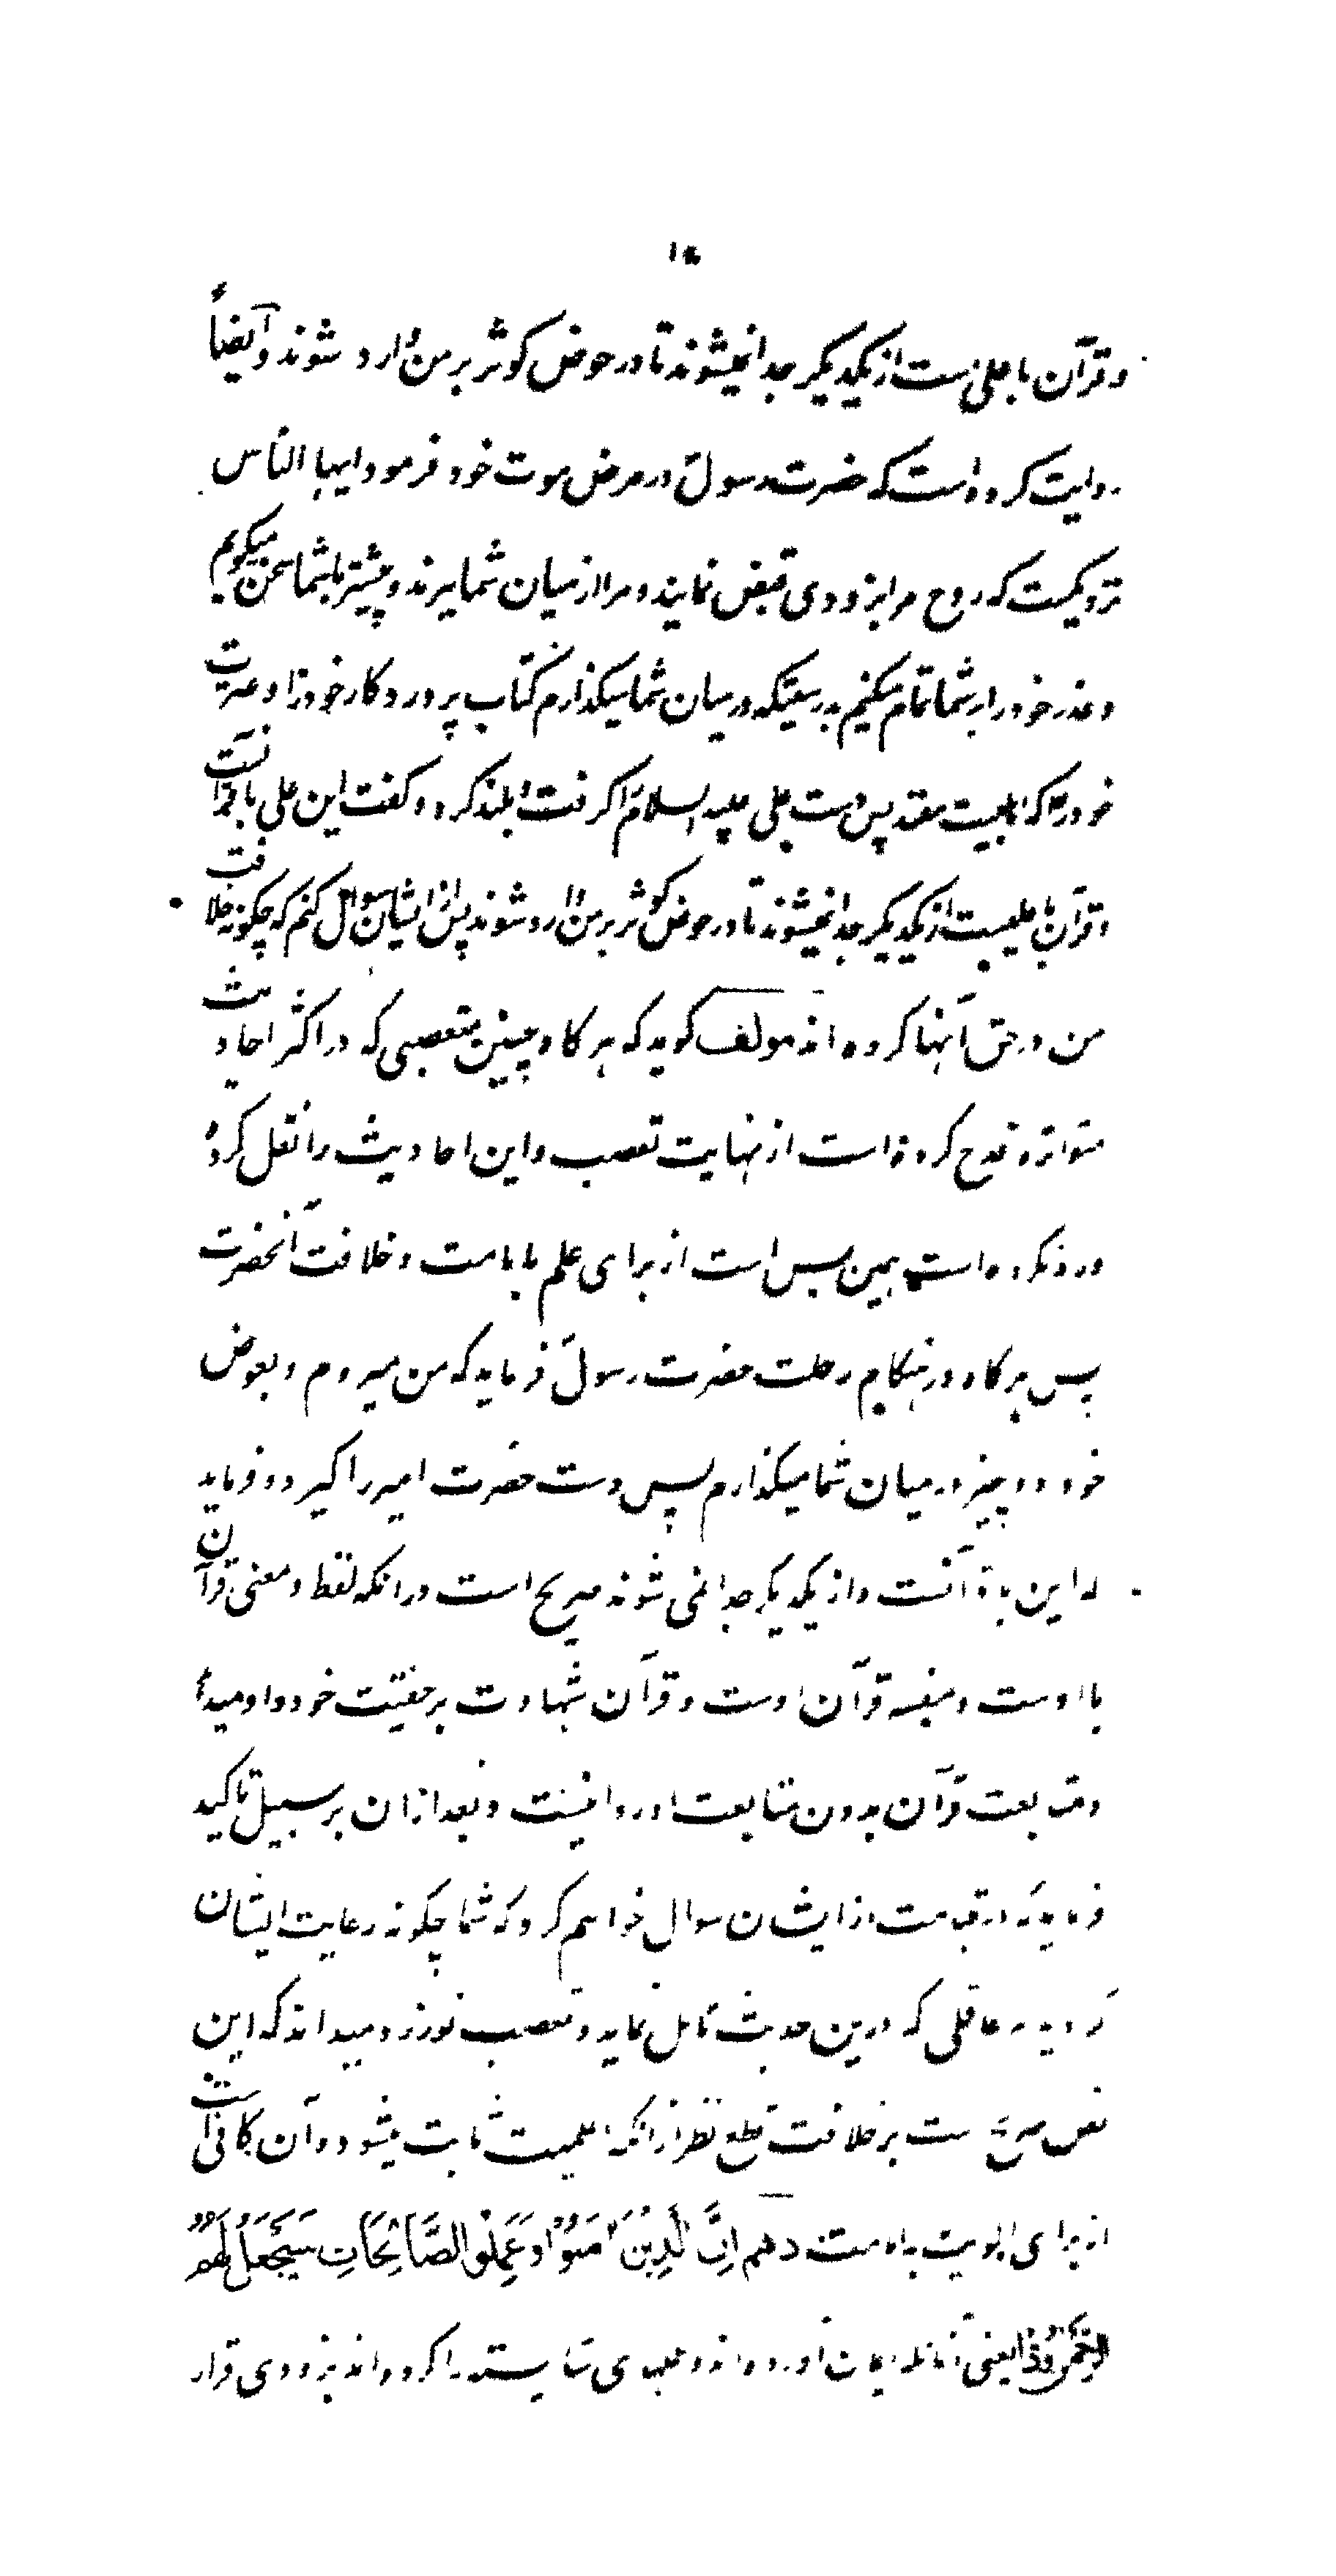 ۱۵
و قرآن با علی ست از یکدیگر جدا نمیشوند تا در حوض کوثر بر من وارد شوند و آیضاً
روایت کرده است که حضرت رسول در مرض موت خود فرمود ایها الناس
نزدیکست که روح مرا بزودی قبض نمایند و مرا از میان شما ببرند و پیشتر بشما سخن میگویم
و عذر خود را بر شما تمام میکنم بدرستیکه در میان شما میگذارم کتاب پروردگار خود را و عترت
خود را که اهلبیت منند پس دست علی علیه السلام را گرفت و بلند کرد و گفت این علی با قرآنست
و قرآن با علیست از یکدیگر جدا نمیشوند تا در حوض کوثر بر من وارد شوند پس از ایشان سوال کنم که چگونه خلافت
من در حق آنها کرده اند مولف گوید که هر گاه چنین متعصبی که در اکثر احادیث
متواتره قدح کرده است از نهایت تعصب و این احادیث را نقل کرده
ورد نکرده است همین بس است از برای علم ما بامامت و خلافت آنحضرت
پس هر گاه در هنگام رحلت حضرت رسول فرماید که من میروم و بعوض
خود دو چیز در میان شما میگذارم پس دست حضرت امیر را گیرد و فرماید
که این با آنست و از یکدیگر جدا نمی شوند صریح است در انکه لفظ و معنی قرآن
با اوست و مفسر قرآن اوست و قرآن شهادت بر حقیت خود و او میدهد
و متابعت قرآن بدون متابعت او روا نیست و بعد ازان بر سبیل تاکید
فرماید که در قیامت از ایشان سوال خواهم کرد که شما چگونه رعایت ایشان
کردید هر عاقلی که درین حدیث تامل نماید و تعصب نورزد میداند که این
نص صریح ست بر خلافت قطع نظر از انکه اعلمیت ثابت میشود و آن کافی است
از برای اولویت بامامت دهم اِنَّ الَّذِینَ اٰمَنُوْا وَعَمِلُوا الصَّالِحَاتِ سَیَجْعَلُ لَهُمُ
الرَّحْمٰنُ وُدّاً یعنی آنانکه ایمان آورده اند و عملهای شایسته را کرده اند بزودی قرار